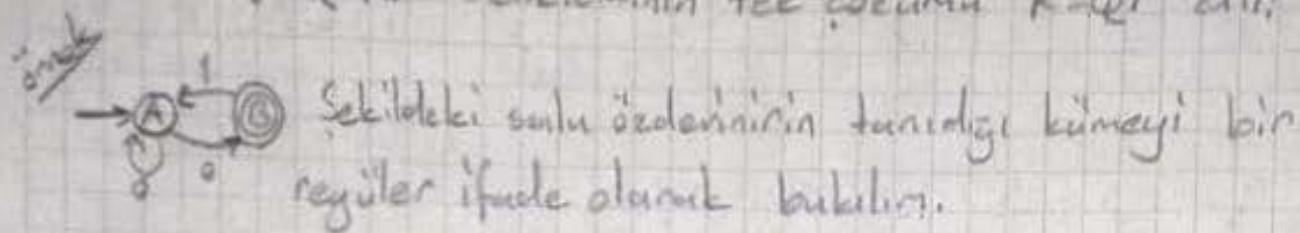 tek çözümü
örnek
1
A B Şekildeki sonlu özdevinirin tanıdığı kümeyi bir
0 0
regüler ifade olarak bulalım.